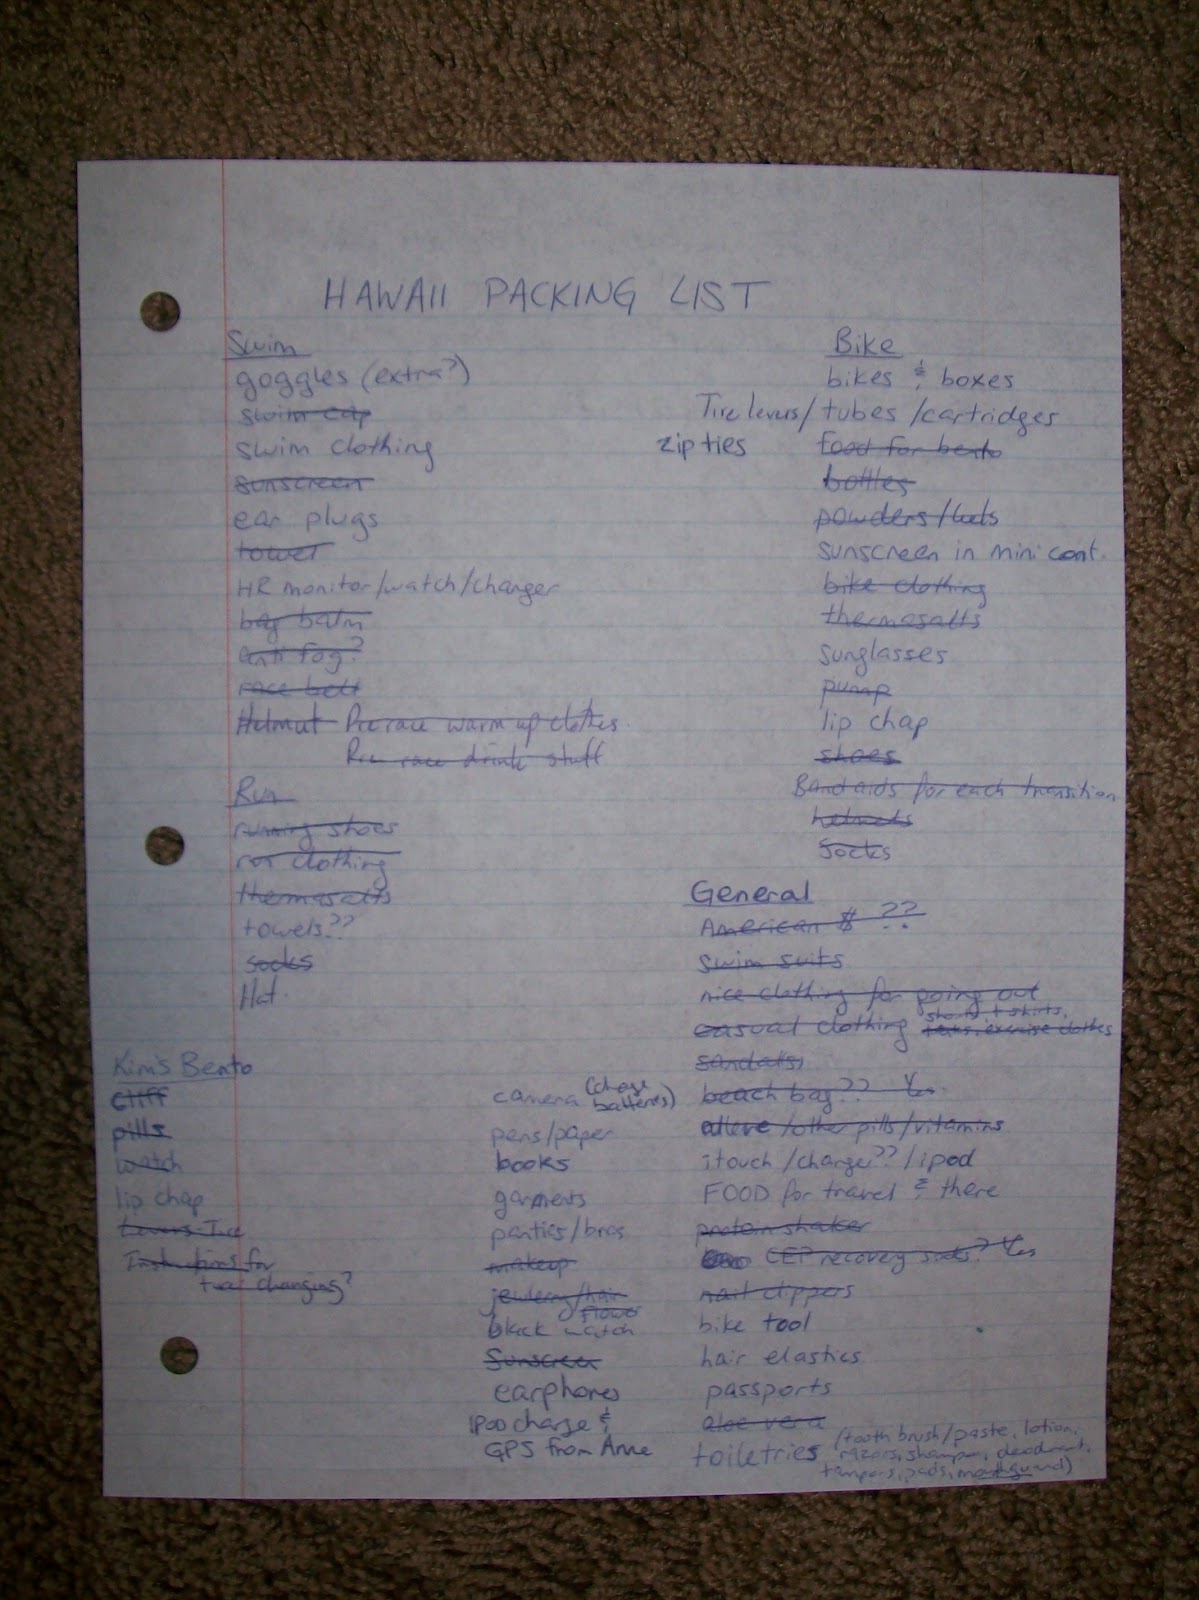 HAWAII PACKING LIST
Swim
goggles (extra?)
swim cap
swim clothing
sunscreen
ear plugs
towel
HR monitor/watch/charger
bag balm
anti fog?
race belt
Helmut Pre race warm up clothes
Pre race drink stuff
Run
running shoes
run clothing
thermasalts
towels??
socks
Hat
Kim's Bento
cliff
pills
watch
lip chap
Levers Tire
Instructions for
changing?
Bike
bikes & boxes
Tire levers/tubes/cartridges
zip ties
food for bento
bottles
powders/
sunscreen in mini cont.
bike clothing
thermasalts
sunglasses
pump
lip chap
shoes
Bandaids for each transition
helmets
socks
General
American $ ??
swim suits
nice clothing for going out
casual clothing shorts, t shirts,
exercise clothes
sandals
beach bag?? Yes
alleve/other pills/vitamins
itouch/charger??/ipod
FOOD for travel & there
protein shaker
CEP recovery socks? Yes
nail clippers
bike tool
hair elastics
passports
aloe vera
toiletries (tooth brush/paste, lotion,
razors, shampoo, deodorant,
tampons, pads, mouthguard)
camera (charge
batteries)
pens/paper
books
garments
panties/bras
makeup
jewlery/hair
flower
black watch
Sunscreen
earphones
IPOD charge &
GPS from Anne